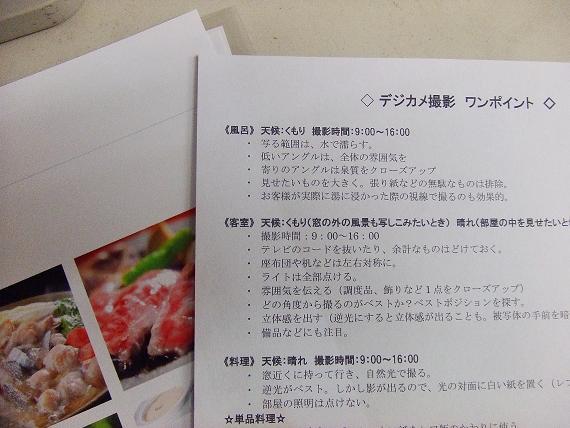 ◇ デジカメ撮影 ワンポイント ◇
《風呂》 天候：くもり 撮影時間：9：00～16：00
・ 写る範囲は、水で濡らす。
・ 低いアングルは、全体の雰囲気を
・ 寄りのアングルは泉質をクローズアップ
・ 見せたいものを大きく。張り紙などの無駄なものは排除。
・ お客様が実際に湯に浸かった際の視線で撮るのも効果的。
《客室》 天候：くもり（窓の外の風景も写しこみたいとき） 晴れ（部屋の中を見せたいと
・ 撮影時間：９：００～１６：００
・ テレビのコードを抜いたり、余計なものはどけておく。
・ 座布団や机などは左右対称に。
・ ライトは全部点ける。
・ 雰囲気を伝える（調度品、飾りなど１点をクローズアップ）
・ どの角度から撮るのがベストか？ベストポジションを探す。
・ 立体感を出す（逆光にすると立体感が出ることも。被写体の手前を暗
・ 備品などにも注目。
《料理》 天候：晴れ 撮影時間：9：00～16：00
・ 窓近くに持って行き、自然光で撮る。
・ 逆光がベスト。しかし影が出るので、光の対面に白い紙を置く（レフ
・ 部屋の照明は点けない。
☆単品料理☆